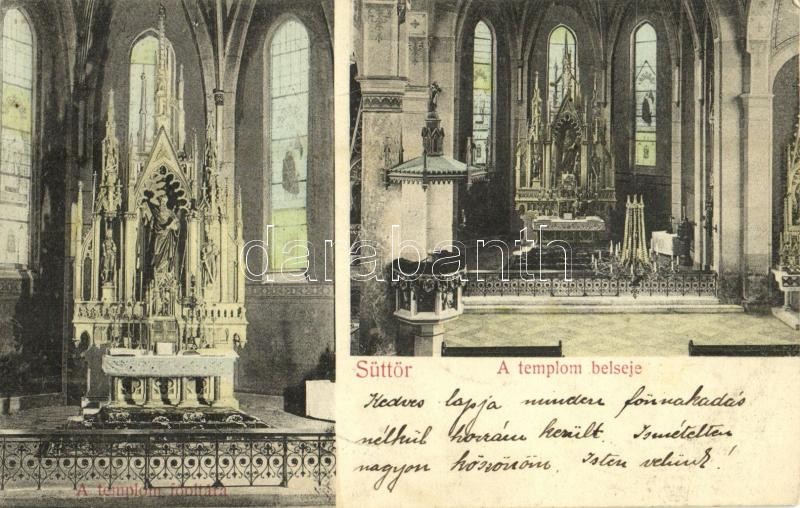 darabanth
Süttör A templom belseje
Kedves lapja minden fönnakadás
nélkül hozzám került. Ismételten
nagyon köszönöm. Isten velünk!
A templom főoltára